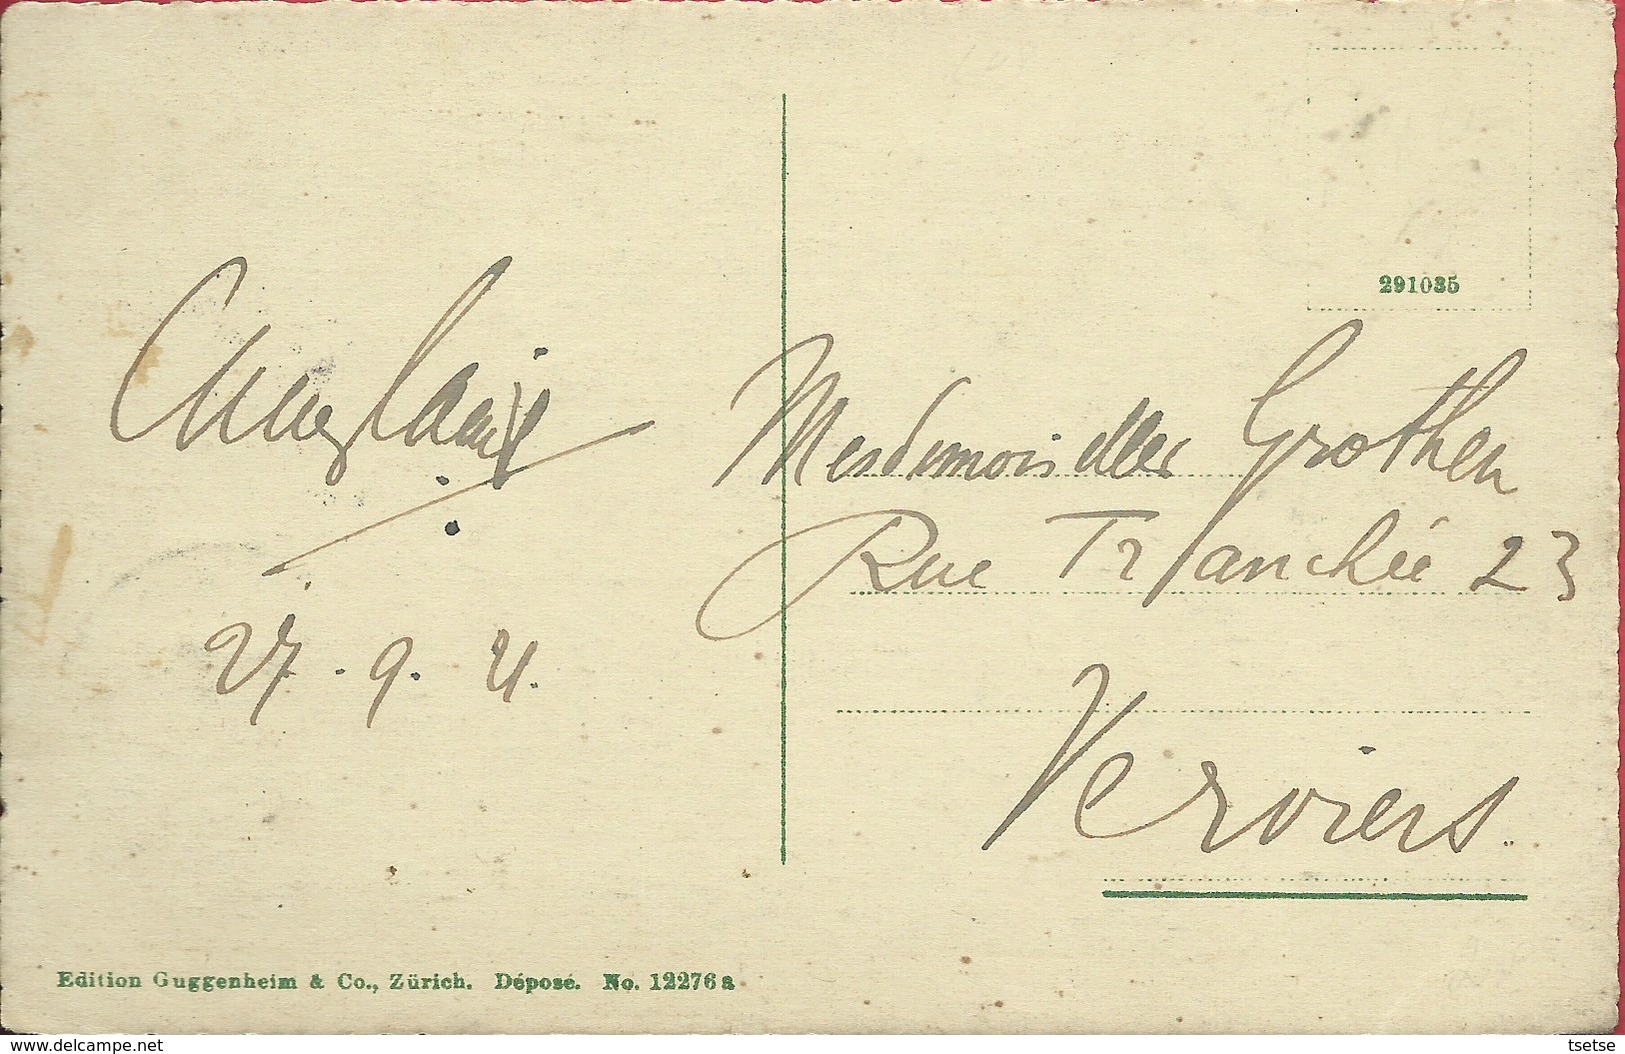 27. 9. 21.
291035
Mesdemoiselles Grothen
Rue Tranchée 23
Verviers.
Edition Guggenheim & Co., Zürich. Déposé. No. 12276 a
delcampe.net
tsetse